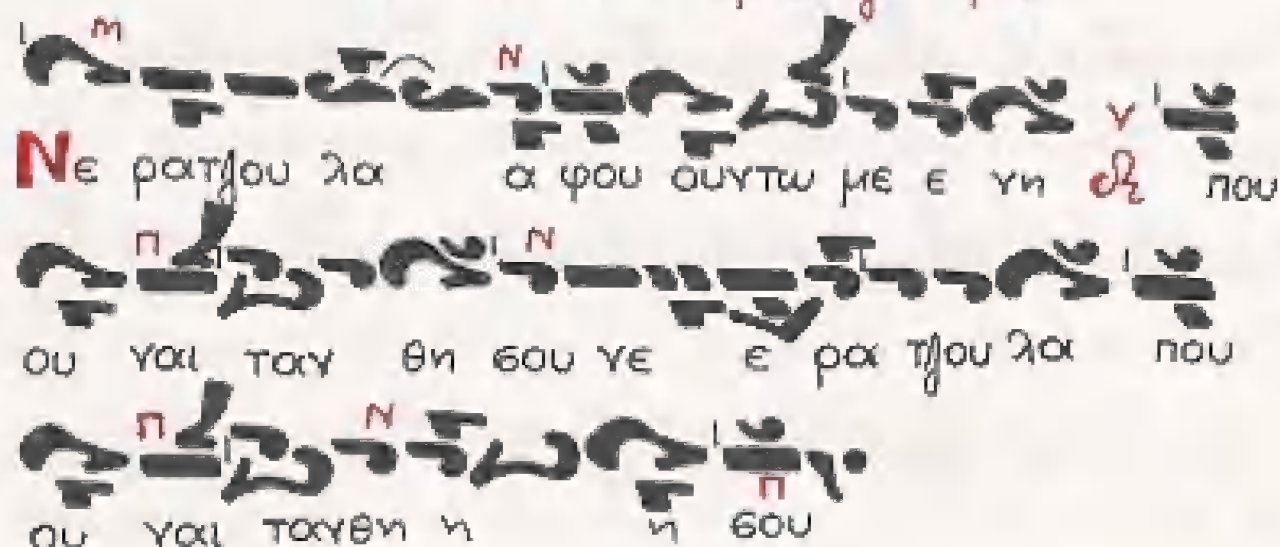 Νε ρατζου λα α φου ουντω με ε νη που
ου ναι ταν θη σου νε ε ρα τζου λα που
ου ναι τανθη η η σου